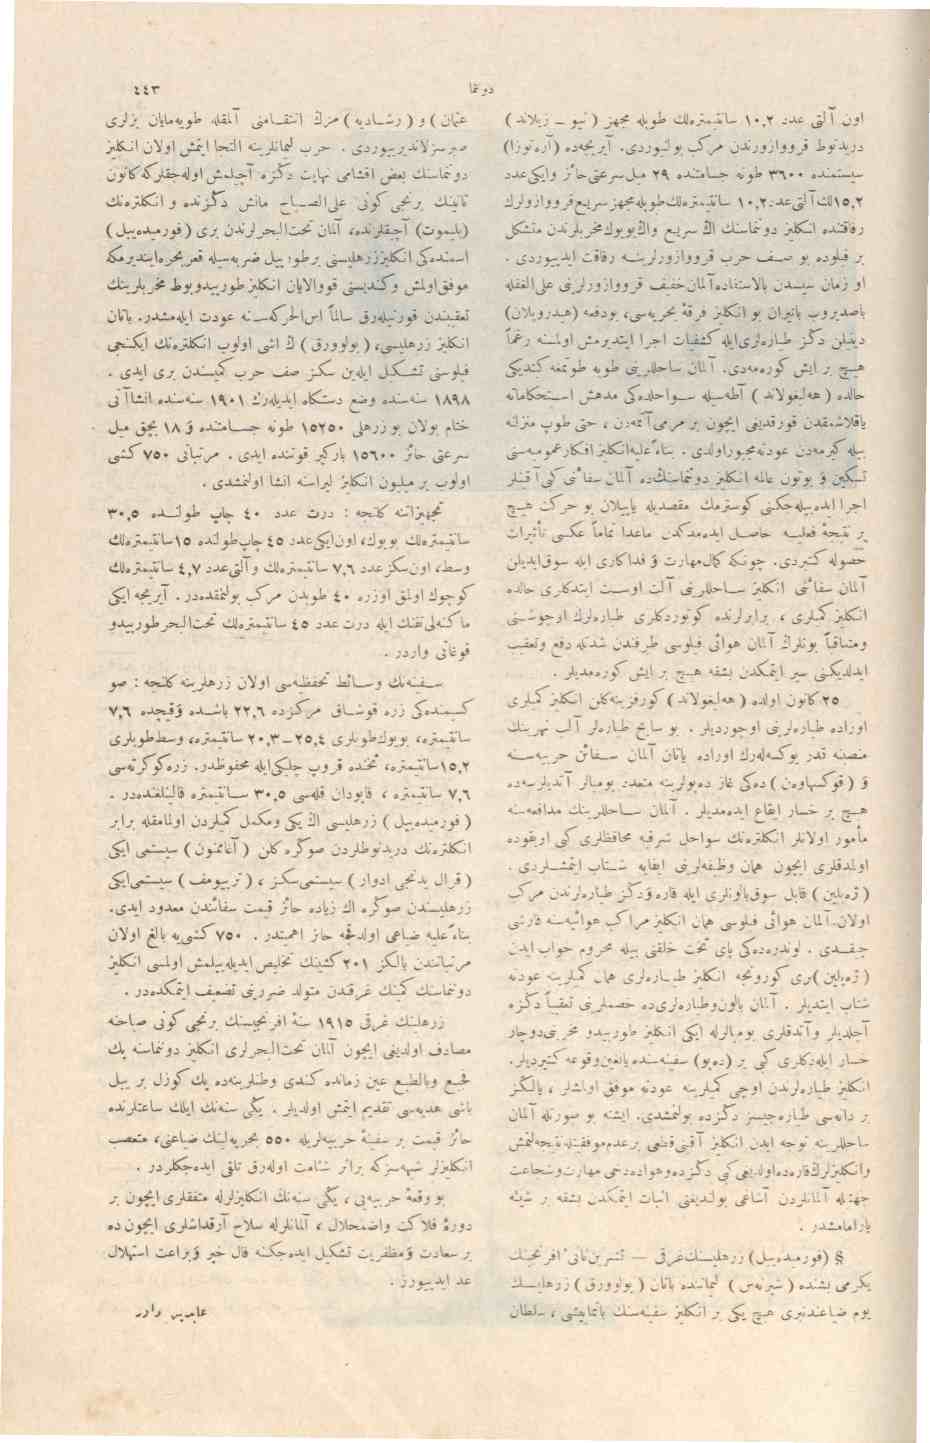 دوننما
٤٤٣
اون آلتی عدد ١٠,٢ سانتیمتره‌لك طوپله مجهز ( نیو ـ زیلاند )
دریدنوط قرووازورندن مركب بولنیوردی. آیریجه‌ده (آره‌توزا)
سیستمنده ٣٦٠٠ طونه جسامتنده ٢٩ میل سرعتی حائز وایكی عدد
١٥,٢لك آلتی عدد ١٠,٢ سانتیمتره‌لك طوپله مجهز سریع قرووازورلرك
رفاقتنده انكلیز دوننماسنك اڭ سریع واڭ بویوك مخربلرندن متشكل
بر فیلوده بو صف حرب قرووازورلرینه رفاقت ایدییوردی .
او زمان سیسدن بالاستفاده آلمان خفیف قرووازورلرینی علی الغفله
باصدیروب باتیران بو انكلیز فرقهٔ بحریه‌سی، بودفعه (هیدروپلان)
دینیلن دكز طیاره‌لری ایله كشفیات اجرا ایتدیرمش اولمسنه رغماً
هیچ بر ایش كوره‌مه‌دی. آلمان ساحللرینی طوپه طوتمغه كندیكی
حالده ( هه‌لیغولاند ) آطه‌سیله سواحلده‌كی مدهش استحكاماته
یاقلاشمقدن قورقدیغی ایچون بر مرمی آتمه‌دن ، حتی طوپ منزلنه
بیله كیرمه‌دن عودته مجبور اولدی . بناءً علیه انكلیز افكار عمومیه‌سنی
تسكین و بوتون عالمه انكلیز دوننماسنڭ‌ده آلمان سفائنی كبی آقینلر
اجرا ایده‌بیله‌جكنی كوسترمك مقصدیله یاپیلان بو حركت هیچ
بر نتیجهٔ فعلیه حاصل ایده‌مدكدن ماعدا تماماً عكسی تأثیرات
حصوله كتیردی. چونكه كمال مهارت و فداكاری ایله سوق ایدیلن
آلمان سفائنی انكلیز ساحللرینی آلت اوست ایتدكلری حالده
انكلیز كمیلری ، برابرلرنده كوتوردكلری طیاره‌لرك اوچوشنی
ومتعاقباً بونلرك آلمان هوائی فیلوسی طرفندن شدتله دفع وتعقیب
ایدلدیكنی سیر ایتمكدن بشقه هیچ بر ایش كوره‌مدیلر .
٢٥ كانون اولده ( هه‌لیغولاند ) كورفزینه كلن انكلیز كمیلری
اوراده طیاره‌لرینی اوچوردیلر . بو سابح طیاره‌لر آلب نهرینك
منصبنه قدر یوكسه‌له‌رك اوراده یاتان آلمان سفائن حربیه‌سنه
و ( قوكسهاوه‌ن ) ده‌كی غاز ده‌پولرینه متعدد بومبالر آتدیلرسه‌ده
هیچ بر خسار ایقاع ایده‌مدیلر . آلمان ساحللرینك مدافعه‌سنه
مأمور اولانلر انكلتره‌نك سواحل شرقیه محافظلری كبی اویقوده
اولمدقلری ایچون همان وظیفه‌لرینی ایفایه شتاب ایتمشلردی .
( زه‌پلین ) قابل سوق بالونلری ایله قاره و دكز طیاره‌لرندن مركب
اولان آلمان هوائی فیلوسی همان انكلیز مراكب هوائیه‌سنه قارشی
چیقدی . لوندره‌ده‌كی پای تخت خلقنی بیله محروم خواب ایدن
( زه‌پلین )لری كورونجه انكلیز طیاره‌لری همان كمیلرینه عودته
شتاب ایتدیلر . آلمان بالون وطیاره‌لری‌ده خصملرینی تعقیباً دكزه
آچلدیلر وآتدقلری بومبالرله ایكی انكلیز طورپیدو مخربنی دوچار
خسار ایله‌دكلری كبی بر (ده‌پو) سفینه‌سنده یانغین وقوعه كتیردیلر.
انكلیز طیاره‌لرندن اوچی كمیلرینه عودته موفق اولمشلر ، یالكز
بر دانه‌سی طیاره‌جیسز دكزده بولنمشدی. ایشته بو صورتله آلمان
ساحللرینه توجه ایدن انكلیز آقینی قطعی بر عدم موفقیتله نتیجه‌لنمش
وانكلیزلرك قاره‌ده اولدیغی كبی دكزده وهواده دخی مهارت وشجاعت
جهتیله آلمانلردن آشاغی بولندیغنی اثبات ایتمكدن بشقه بر شیئه
یارامامشدر .
§ (فورمیده‌بیل) زرهلیسنك غرقی — تشرین ثانیٔ افرنجینك
یكرمی بشنده ( شیرنه‌س ) لیماننده باتان ( بولوورق ) زرهلیسنك
یوم ضیاعندنبری هیچ یكی بر انكلیز سفینه‌سنك باتمایشی ، سلطان
عثمان ) و ( رشادیه ) مزك انتقامنی آلمقله طویه‌مایان بزلری
صبرسزلاندیرییوردی . حرب لیمانلرینه التجا ایتمش اولان انكلیز
دوننماسنك بعض اقشامی نهایت دكزه آچیلمش اوله‌جقلركه كانون
ثانینك برنجی كونی علی الصباح مانش دكزنده و انكلتره‌نك
(پلیموت) آچیقلرنده، آلمان تحت‌البحرلرندن بری (فورمیده‌بیل)
اسمنده‌كی انكلیز زرهلیسنی بر طورپیل ضربه‌سیله قعر بحره ایندیرمكه
موفق اولمش وكندیسنی قووالایان انكلیز طورپیدوبوط مخربلرینك
تعقیبندن قورتیله‌رق سالماً اس‌الحركه‌سنه عودت ایله‌مشدر. باتان
انكلیز زرهلیسی، ( بولوورق ) ك اشی اولوب انكلتره‌نك ایكنجی
فیلوسنی تشكیل ایله‌ین سكز صف حرب كمیسندن بری ایدی .
١٨٩٨ سنه‌سنده وضع دستكاه ایدیله‌رك ١٩٠١ سنه‌سنده انشاآتی
ختام بولان بو زرهلی ١٥٢٥٠ طونه جسامتنده و ١٨ بچق میل
سرعتی حائز ١٥٦٠٠ باركیر قوتنده ایدی . مرتباتی ٧٥٠ كشی
اولوب بر میلیون انكلیز لیراسنه انشا اولنمشدی .
تجهیزاتنه كلنجه : درت عدد ٤٠ چاپ طولنده ٣٠,٥
سانتیمتره‌لك بویوك، اون ایكی عدد ٤٥ چاپ طولنده ١٥ سانتیمتره‌لك
وسط، اون سكز عدد ٧,٦ سانتیمتره‌لك وآلتی عدد ٤,٧ سانتیمتره‌لك
كوچوك اولمق اوزره ٤٠ طوپدن مركب بولنمقده‌در. آیریجه ایكی
ماكنه‌لی تفنك ایله درت عدد ٤٥ سانتیمتره‌لك تحت‌البحر طورپیدو
قوغانی واردر .
سفینه‌نك وسائط تحفظیه‌سی اولان زرهلرینه كلنجه : صو
كسیمنده‌كی زره قوشاق مركزده ٢٢,٦ باشده وقیچده ٧,٦
سانتیمتره، بویوك طوپلری ٢٥,٤–٢٠,٣ سانتیمتره، وسط طوپلری
١٥,٢سانتیمتره، تختده قروپ چلیكی ایله محفوظدر. زره كوكرته‌سی
٧,٦ سانتیمتره ، قاپودان قله‌سی ٣٠,٥ سانتیمتره قالینلغنده‌در .
( فورمیده‌بیل ) زرهلیسی اڭ یكی ومكمل كمیلردن اولمامقله برابر
انكلتره‌نك دریدنوطلردن صوكره كلن ( آغاممنون ) سیستمی ایكی
( قرال یدنجی ادوار ) سیستمی سكز ، ( تریومف ) سیستمی ایكی
زرهلیسندن صوكره اڭ زیاده حائز قیمت سفائندن معدود ایدی.
بناءً علیه ضیاعی اولدقجه حائز اهمیتدر . ٧٥٠ كشی‌یه بالغ اولان
مرتباتندن یالكز ٢٠١ كشینك تخلیص ایدیله‌بیلمش اولمسی انكلیز
دوننماسنك كمینك غرقندن متولد ضررینی تضعیف ایتمكده‌در .
زرهلینك غرقی ١٩١٥ سنهٔ افرنجیه‌سنك برنجی كونی صباحنه
مصادف اولدیغی ایچون آلمان تحت‌البحرلری انكلیز دوننماسنه پك
فجیع وبالطبع عین زمانده كندی وطنلرینه‌ده پك كوزل بر ییل
باشی هدیه‌سی تقدیم ایتمش اولدیلر . یكی سنه‌نك ایلك ساعتلرنده
حائز قیمت بر سفینهٔ حربیه‌لریله ٥٥٠ بحریه‌لینك ضیاعنی، متعصب
انكلیزلر شبهه‌سزكه براثر شئامت اوله‌رق تلقی ایده‌جكلردر .
بو وقعهٔ حربیه‌یی ، یكی سنه‌نك انكلیزلرله متفقلری ایچون بر
دورهٔ فلاكت واضمحلال ، آلمانلرله سلاح آرقداشلری ایچون ده
بر سعادت ومظفریت تشكیل ایده‌جكنه فال خیر وبراعت استهلال
عد ایدییورز .
عابدین داور